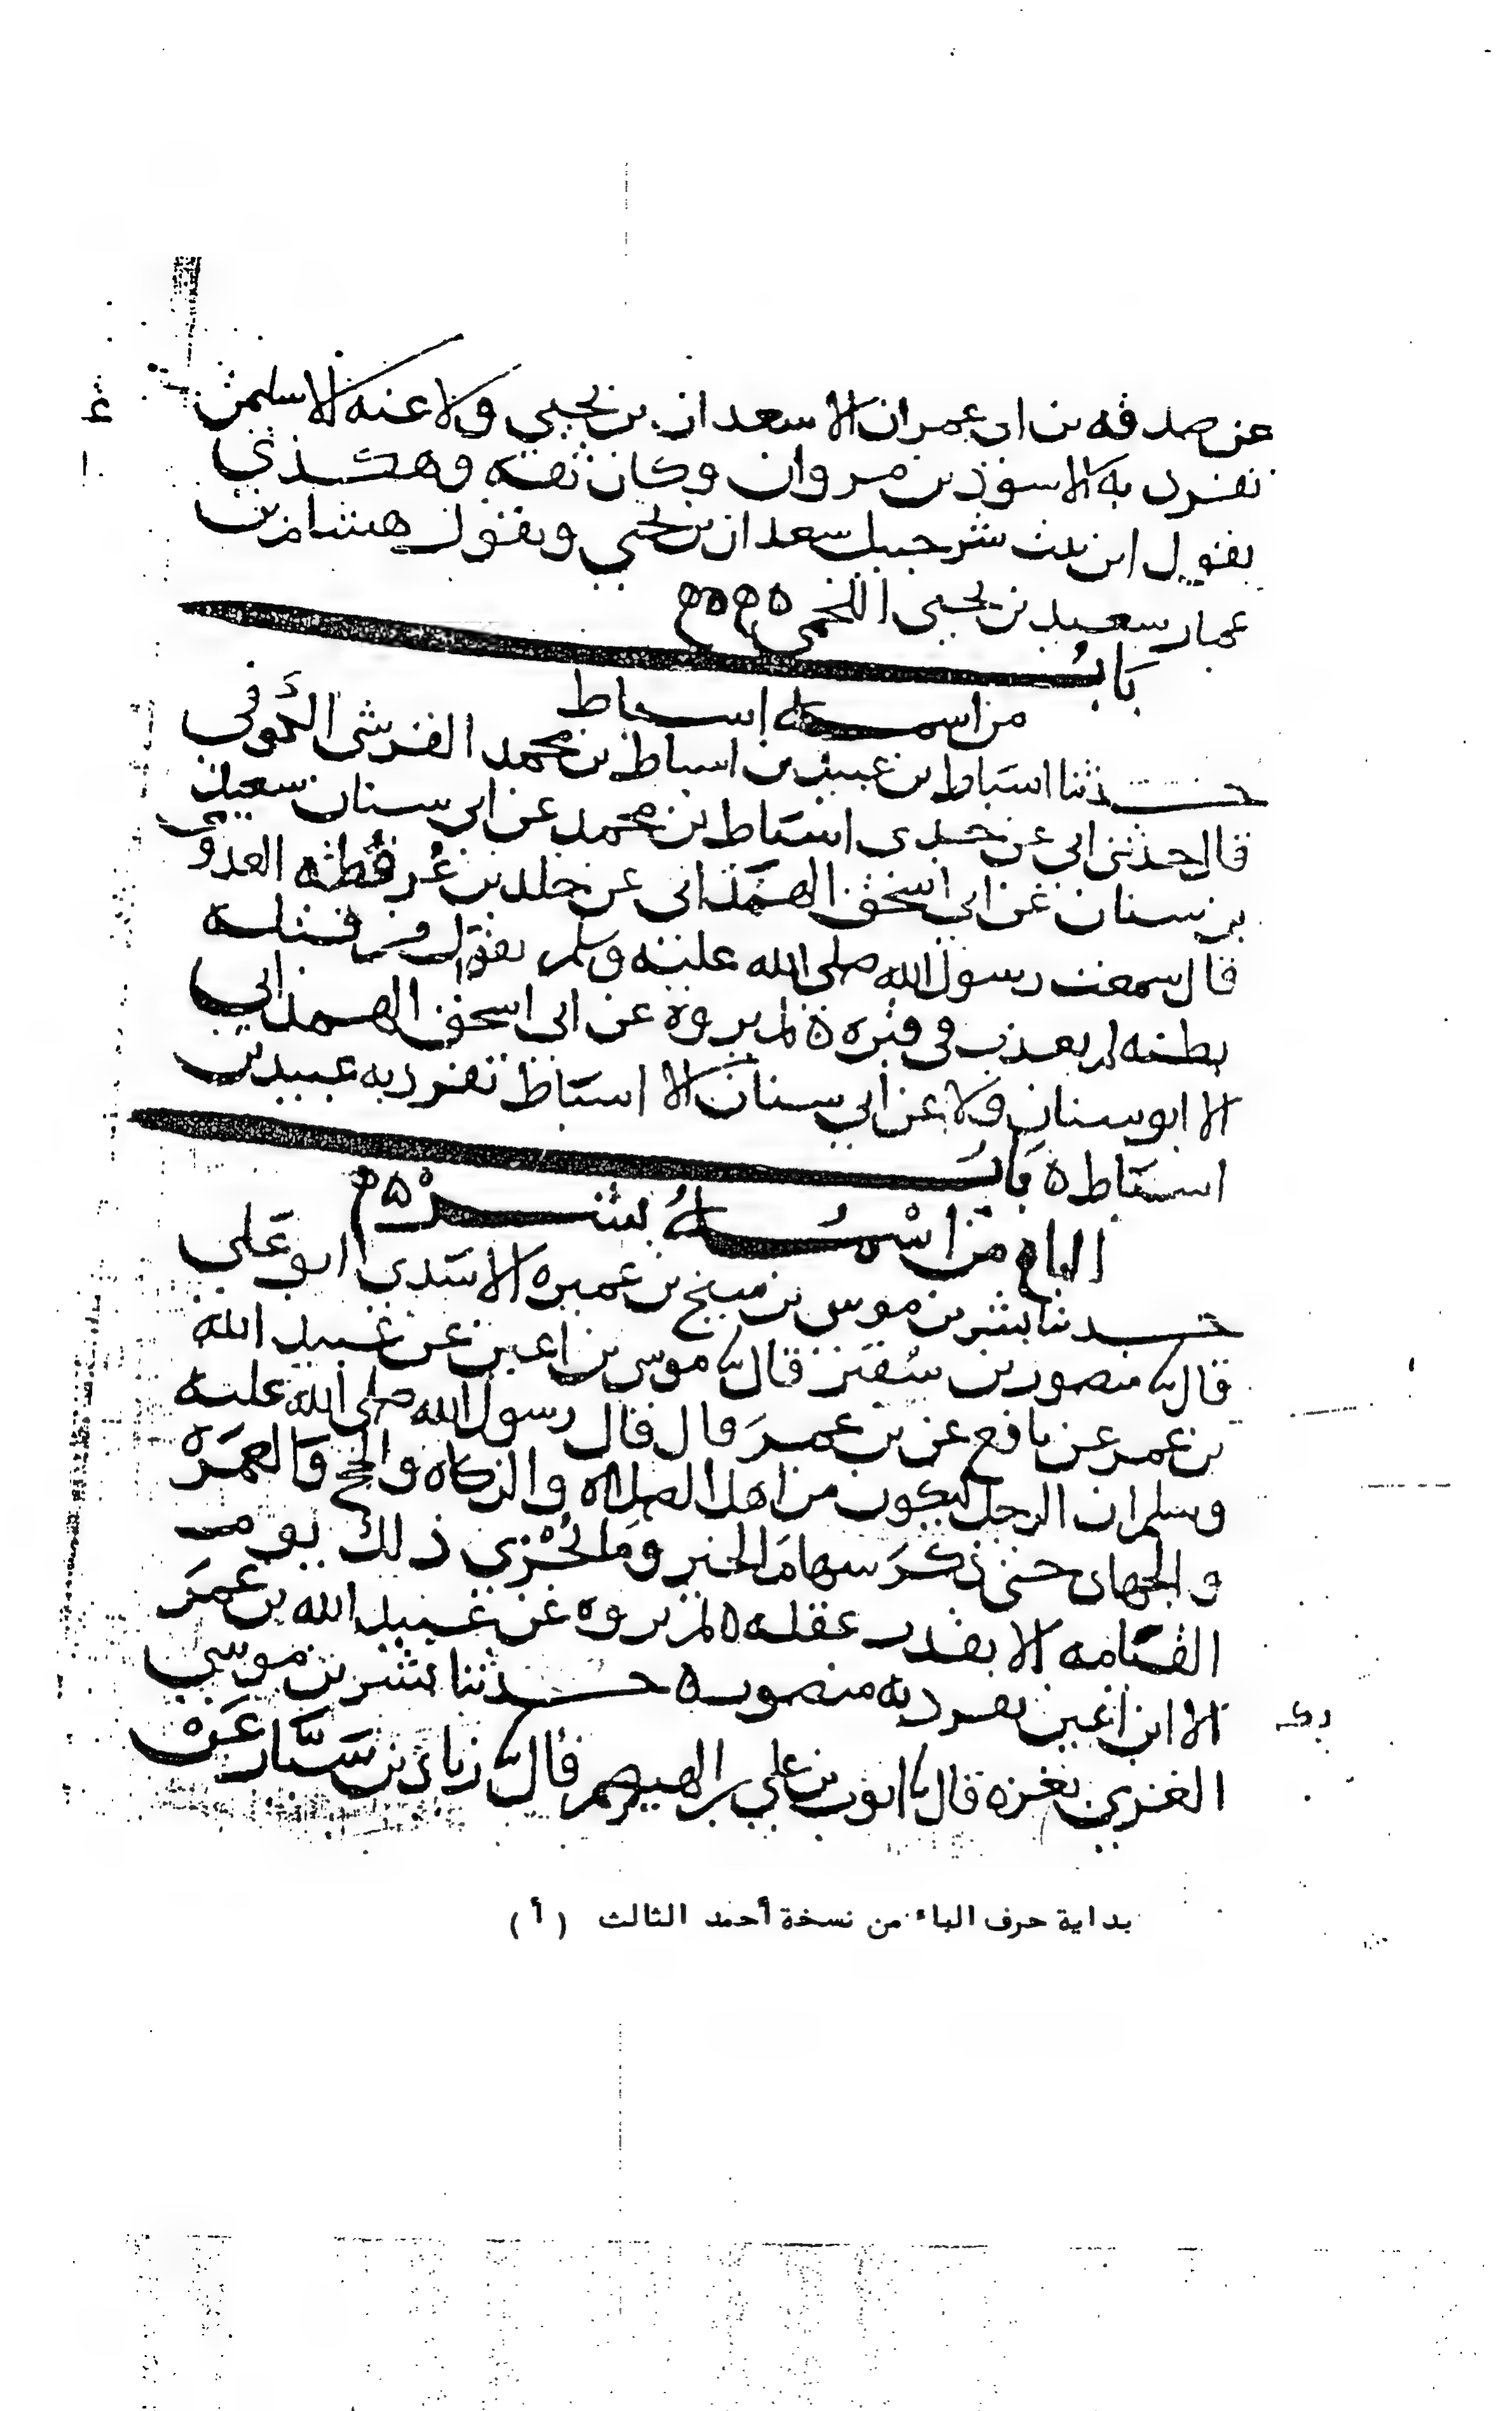 عن صدقه بن ابى عمران الا سعدان بن يحيى ولا عنه الا سليمن
تفرد به الاسوذ بن مروان وكان ثقه وهكذي
يقول ابن بنت شرحبيل سعدان بن يحيى ويقول هشام بن
عمار سعيد بن يحيى اللخمى
بَابُ
من اسمه اسباط
حدثنا اسبَاط بن عبيد بن اسباط بن محمد القرشى الكوفي
قال حدثنى ابى عن جدى اسبَاط بن محمد عن ابى سنان سعيد
بن سنان عن ابى اسحق الهمَذانى عن خلد بن عُرفُطه العدوى
قال سمعت رسول الله صلى الله عليه وسلم يقول من قتله
بطنه لم يعذب في قبره ه لم يروه عن ابى اسحق الهمداني
الا ابو سنان ولا عن أبي سنان الا اسبَاط تفرد به عبيد بن
اسبَاط ه بَابُ
الباء من اسْمُهُ بشْر
حدثنا بشر بن موسى بن شيخ بن عميره الاسَدى ابو عَلي
قال نا منصور بن سُقَير قال نا موسى بن اعين عن عبيد الله
بن عمر عن نافع عن بن عمرَ قال قال رسول الله صلى الله عليه
وسلم ان الرجل ليكون من اهل الصلاه والزكاه والحج وَالعمرَه
والجهاد حتى ذكرَ سهامَ الخير وَما يُجْزى ذلك يوم
القيَامه الا بقدر عقله ه لم يروه عن عبيد الله بن عمَرَ
الا ابن اعين تفرد به منصور ه حدثنا بشر بن موسي
الغزي بغزه قال نا ايوب بن علي بن الهيصم قال نا زياد بن سَيَّار عَنْ
بداية حرف الباء من نسخة أحمد الثالث (أ)